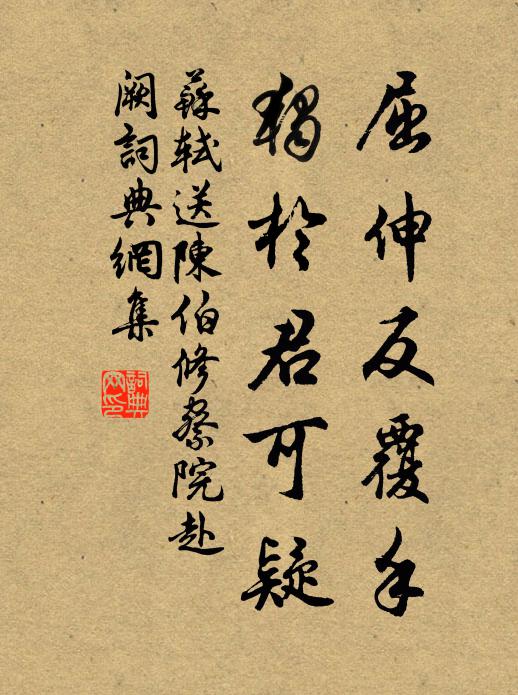 屈伸反覆手
獨於君可疑
蘇軾送陳伯修察院赴
闕詞典網集
詞典
网印